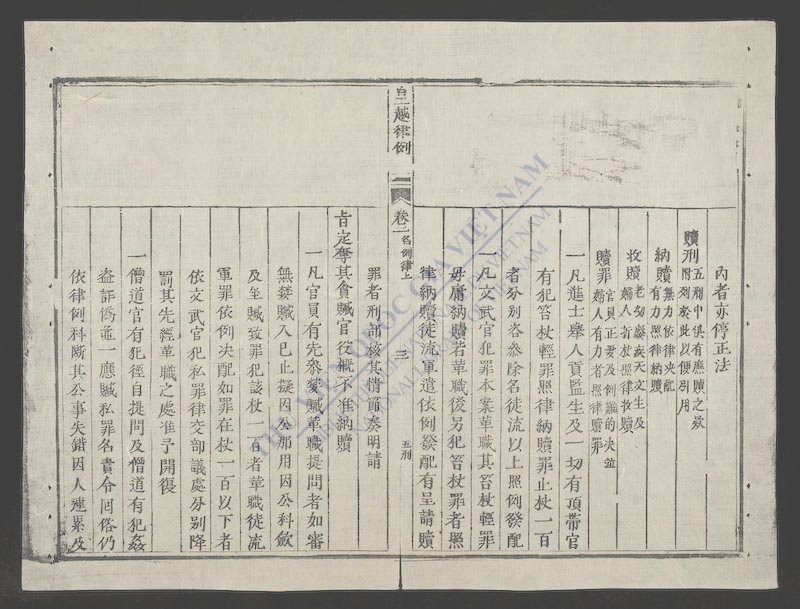 內者亦停正法
贖刑五刑中俱有應贖之款
附列於此以便引用
納贖無力依律決配
有力照律納贖
收贖老幼廢疾天文生及
婦人折杖照律收贖
贖罪官員正妻及例難的決並
婦人有力者照律贖罪
一凡進士舉人貢監生及一切有頂帶官
有犯笞杖輕罪照律納贖罪止杖一百
者分別咨參除名徒流以上照例發配
一凡文武官犯罪本案革職其笞杖輕罪
毋庸納贖若革職後另犯笞杖罪者照
律納贖徒流軍遣依例發配有呈請贖
皇越律例
卷二名例律上
三
五刑
罪者刑部核其情節奏明請
旨定奪其貪贓官役概不准納贖
一凡官員有先參婪贓革職提問者如審
無婪贓入己止擬因公那用因公科斂
及坐贓致罪犯該杖一百者革職徒流
軍罪依例決配如罪在杖一百以下者
依文武官犯私罪律交部議處分別降
罰其先經革職之處准予開復
一僧道官有犯徑自提問及僧道有犯姦
盜詐偽並一應贓私罪名責令回俗仍
依律例科斷其公事失錯因人連累及
THƯ VIỆN QUỐC GIA VIỆT NAM
NATIONAL LIBRARY OF VIETNAM